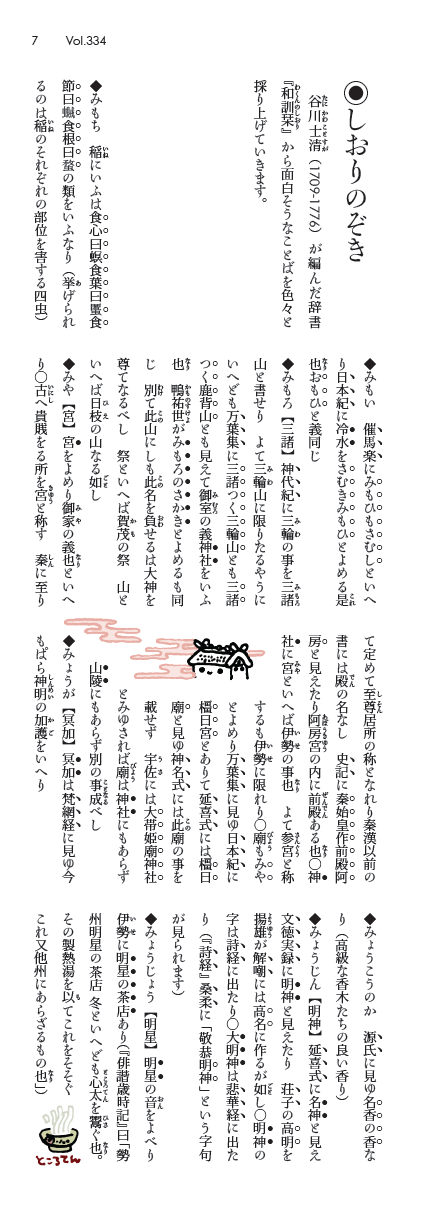 7 Vol.334
◉しおりのぞき
谷川士清（1709-1776）が編んだ辞書
『和訓栞』から面白そうなことばを色々と
採り上げていきます。
◆みもち　稲にいふは食心曰螟食葉曰蟹食
節曰蠈食根曰蝥の類をいふなり（挙げられ
るのは稲のそれぞれの部位を害する四虫）
◆みもい　催馬楽にみもひもさむしといへ
り日本紀に冷水をさむきみもひとよめる是
也おもひと義同じ
◆みもろ【三諸】神代紀に三輪の事を三諸
山と書せり　よて三輪山に限りたるやうに
いへども万葉集に三諸つく三輪山とも三諸
つく鹿背山とも見えて御室の義神社をいふ
也　鴨祐世がみもろのさかきとよめるも同
じ　別て此山にしも此名を負せるは大神を
尊てなるべし　祭といへば賀茂の祭　山と
いへば日枝の山なる如し
◆みや【宮】宮をよめり御家の義也といへ
り〇古へ貴賎をる所を宮と称す　秦に至り
て定めて至尊居所の称となれり秦漢以前の
書には殿の名なし　史記に秦始皇作前殿阿
房と見えたり阿房宮の内に前殿ある也〇神
社に宮といへば伊勢の事也　よて参宮と称
するも伊勢に限れり〇廟もみや
とよめり万葉集に見ゆ日本紀に
橿日宮とありて延喜式には橿日
廟と見ゆ神名式には此廟の事を
載せず　宇佐には大帯姫廟神社
とみゆされば廟は神社にもあらず
山陵にもあらず別の事成べし
◆みょうが【冥加】冥加は梵網経に見ゆ今
もぱら神明の加護をいへり
◆みょうこうのか　源氏に見ゆ名香の香な
り（高級な香木たちの良い香り）
◆みょうじん【明神】延喜式に名神と見え
文徳実録に明神と見えたり　荘子の高明を
揚雄が解嘲には高名に作るが如し〇明神の
字は詩経に出たり〇大明神は悲華経に出た
り（『詩経』桑柔に「敬恭明神」という字句
が見られます）
◆みょうじょう【明星】明星の音をよべり
伊勢に明星の茶店あり（『俳諧歳時記』曰「勢
州明星の茶店 冬といへども心太を鬻ぐ也。
その製熱湯を以てこれをそそぐ
これ又他州にあらざるもの也」）
ところてん